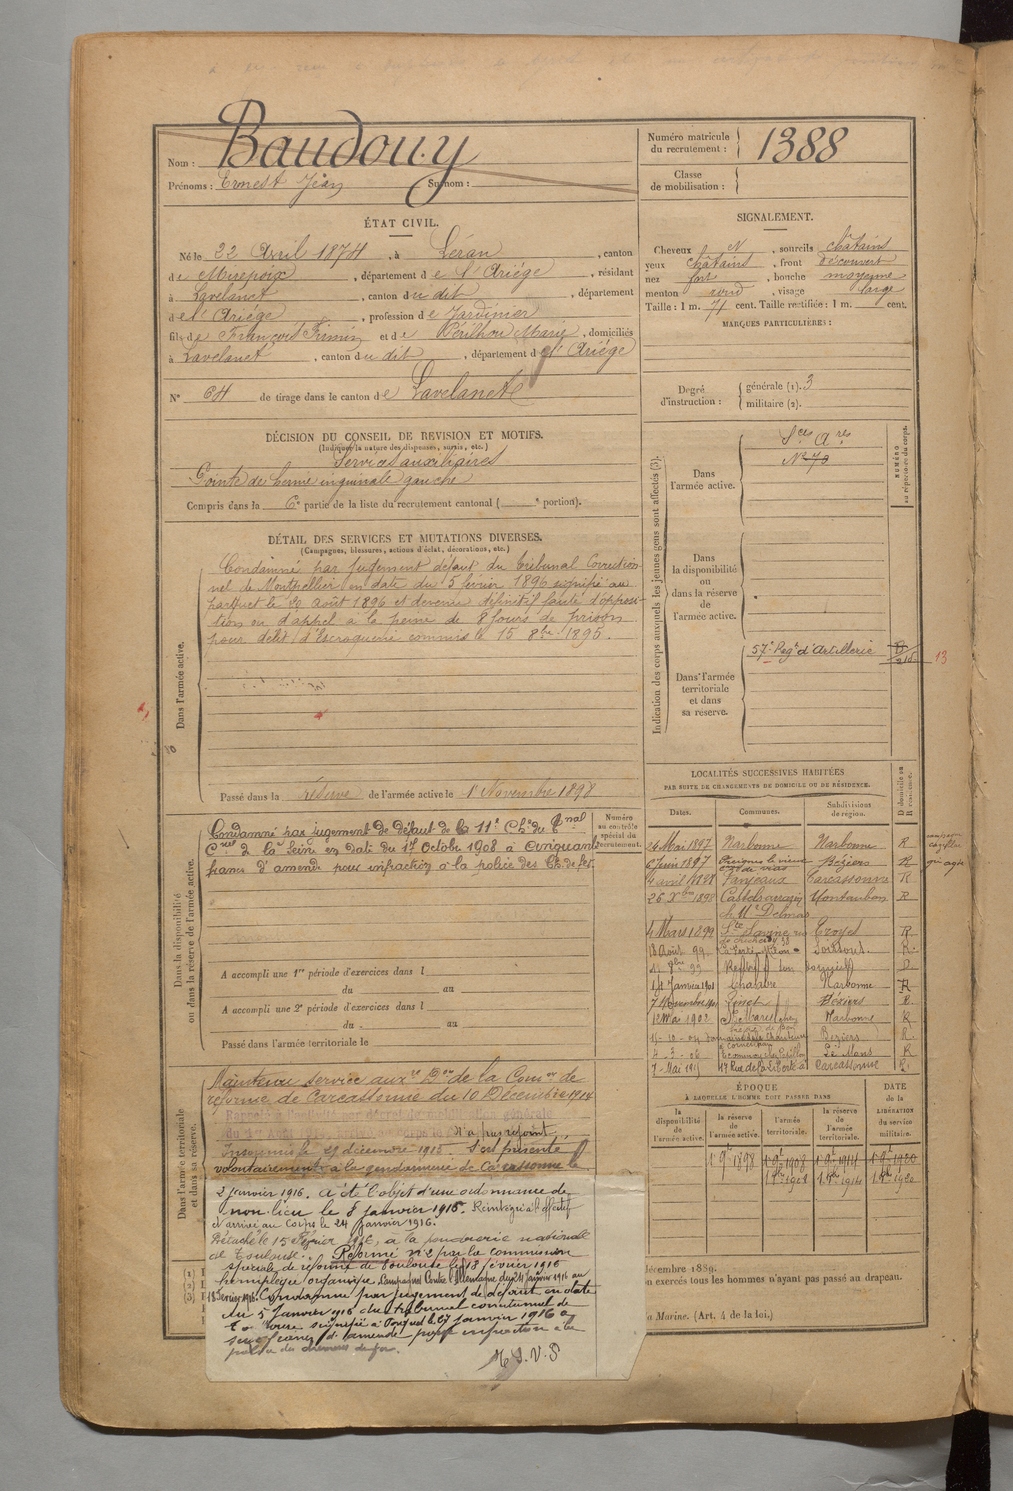 Nom : Baudouy
Prénoms : Ernest Jean Surnom :
Numéro matricule du recrutement : 1388
Classe de mobilisation :
ÉTAT CIVIL.
Né le 22 Avril 1874, à Léran, canton
de Mirepoix, département de l'Ariège, résidant
à Lavelanet, canton du dit, département
de l'Ariège, profession de Jardinier
fils de François Firmin et de Périlhou Marie, domiciliés
à Lavelanet, canton du dit, département de l'Ariège
N° 64 de tirage dans le canton de Lavelanet
SIGNALEMENT.
Cheveux N, sourcils châtains
yeux châtains, front découvert
nez fort, bouche moyenne
menton rond, visage large
Taille : 1 m. 71 cent. Taille rectifiée : 1 m. cent.
MARQUES PARTICULIÈRES :
Degré d'instruction : générale (1). 3
militaire (2).
DÉCISION DU CONSEIL DE REVISION ET MOTIFS.
(Indiquer la nature des dispenses, sursis, etc.)
Services auxiliaires
Pointe de hernie inguinale gauche
Compris dans la 6e partie de la liste du recrutement cantonal ( e portion).
DÉTAIL DES SERVICES ET MUTATIONS DIVERSES.
(Campagnes, blessures, actions d'éclat, décorations, etc.)
Dans l'armée active.
Condamné par jugement défaut du tribunal Correction-
nel de Montpellier en date du 5 février 1896 signifié au
parquet le 20 Août 1896 et devenu définitif faute d'opposi-
tion ou d'appel à la peine de 8 jours de prison
pour délit d'Escroquerie commis le 15 8bre 1895.
Passé dans la réserve de l'armée active le 1er Novembre 1898
Indication des corps auxquels les jeunes gens sont affectés (3).
NUMÉRO au répertoire du corps.
Dans l'armée active.
Sces Ares
N° 70
Dans la disponibilité ou dans la réserve de l'armée active.
Dans l'armée territoriale et dans sa réserve.
57e Regt d'Artillerie
13
Dans la disponibilité ou dans la réserve de l'armée active.
Numéro au contrôle spécial du recrutement.
Condamné par jugement de défaut de la 11e Ch. du Tnal
Cnel de la Seine en date du 17 Octobre 1908 à cinquante
francs d'amende pour infraction à la police des Ch. de fer.
A accompli une 1re période d'exercices dans l
du au
A accompli une 2e période d'exercices dans l
du au
Passé dans l'armée territoriale le
LOCALITÉS SUCCESSIVES HABITÉES
PAR SUITE DE CHANGEMENTS DE DOMICILE OU DE RÉSIDENCE.
Dates. Communes. Subdivisions de région. D domicile ou R résidence.
26 Mai 1897 Narbonne Narbonne R
6 Juin 1897 Béziers R
4 avril 1898 Fanjeaux Carcassonne R
26 Xbre 1898 Castelsarrasin Montauban R
ch. Mr Delmas
4 Mars 1899 Ste Savine Troyes R
18 Août 99 La Ferté Milon Soissons R
14 Janvier 1901 Chalabre Narbonne R
7 Novembre 1901 Béziers R
12 Mai 1902 Narbonne R
15-10-04 Béziers R
4-3-06 Le Mans R
7 Mai 1911 47 Rue de la Liberté à Carcassonne R
Dans l'armée territoriale et dans sa réserve.
Maintenu service auxre Don de la Comon de
réforme de Carcassonne du 10 Décembre 1914
Rappelé à l'activité
N'a pas rejoint
Insoumis le 29 décembre 1915. S'est présenté
volontairement à la gendarmerie de Carcassonne le
2 janvier 1916. A été l'objet d'une ordonnance de
non-lieu le 8 janvier 1916. Réintégré à l'effectif
et arrivé au Corps le 24 janvier 1916.
Détaché le 15 Février 1916, à la poudrerie nationale
de Toulouse. Réformé n° 2 par la commission
spéciale de réforme de Toulouse le 18 février 1916
hémiplégie organique. Campagnes Contre l'Allemagne du 24 janvier 1916 au
18 Février 1916. Condamné par jugement de défaut en date
du 5 janvier 1916 du tribunal correctionnel de
signifié à Parquet le 27 janvier 1916 à
francs d'amende pour infraction à la
police des chemins de fer.
ÉPOQUE
À LAQUELLE L'HOMME DOIT PASSER DANS
la disponibilité de l'armée active. la réserve de l'armée active. l'armée territoriale. la réserve de l'armée territoriale.
DATE de la LIBÉRATION du service militaire.
1 9bre 1898 1 9bre 1908 1 9bre 1914 1 9bre 1920
décembre 1889.
on exercés tous les hommes n'ayant pas passé au drapeau.
la Marine. (Art. 4 de la loi.)